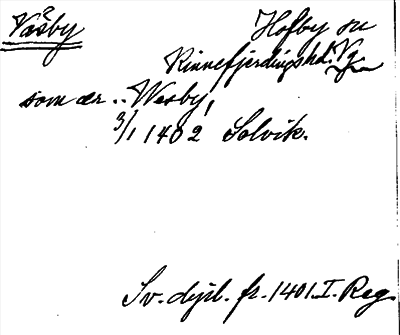 Väsby Hofby sn
Kinnefjerdingshd. Vg
som är .. Wesby,
3/1 1402 Solvik.
Sv. dipl. fr. 1401. I. Reg.